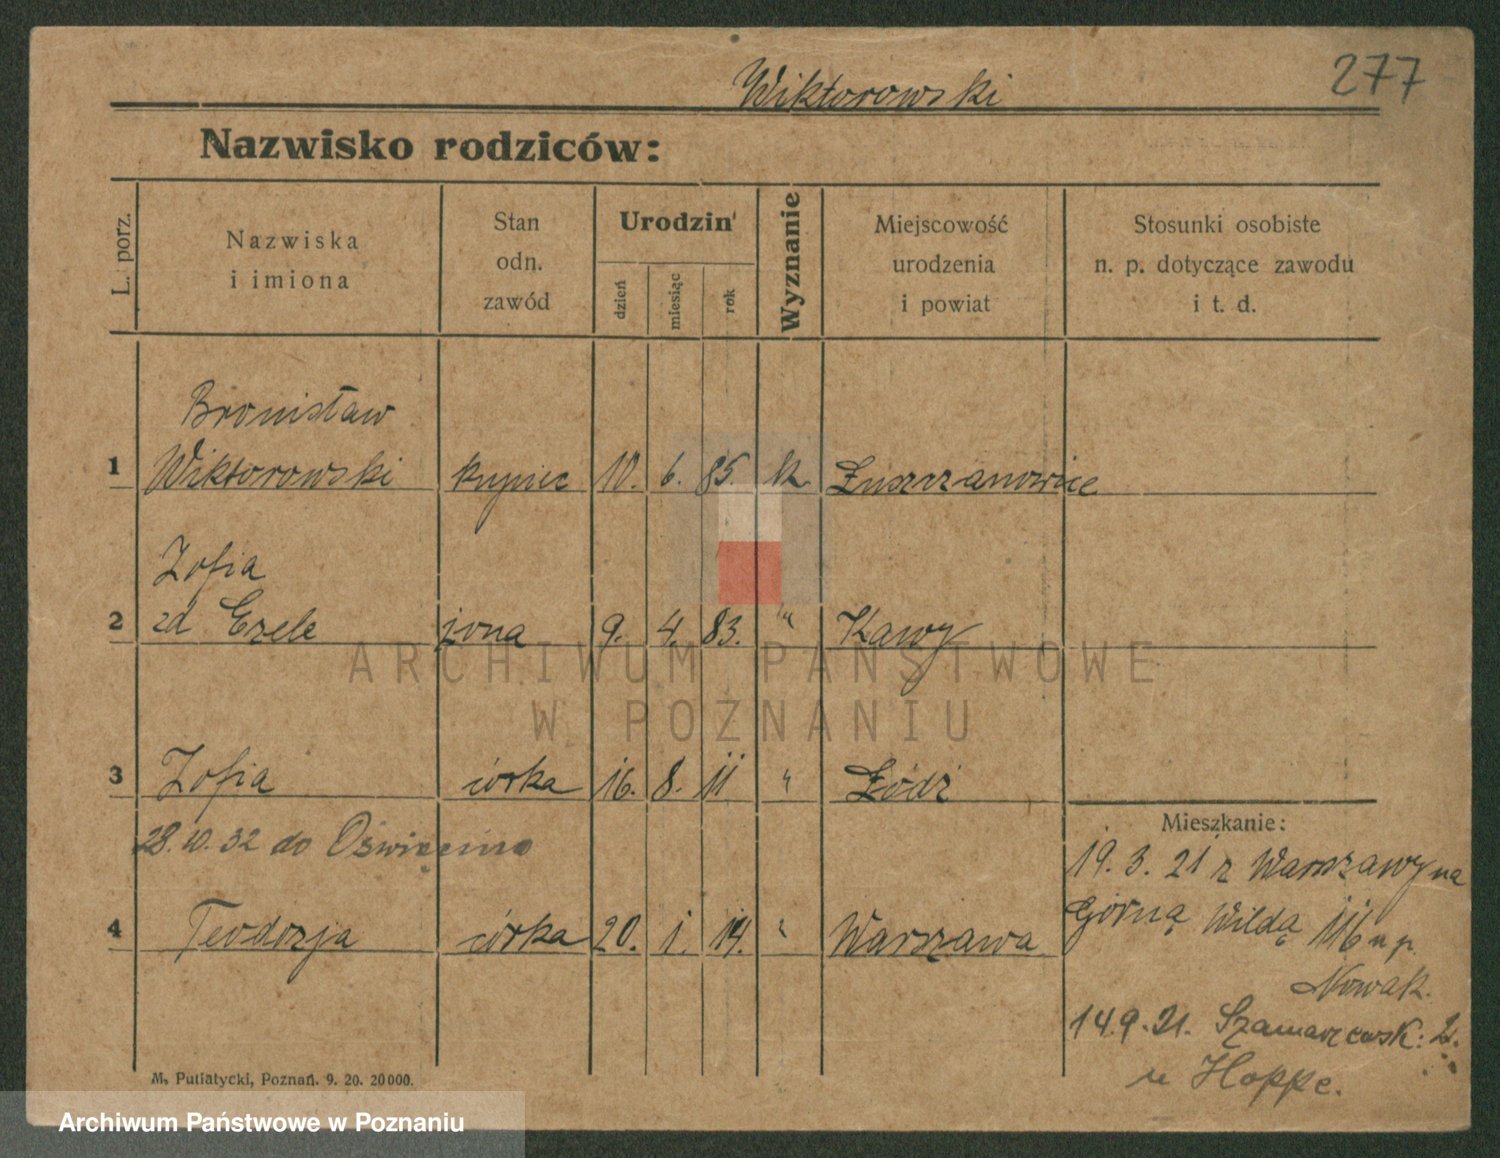 Wiktorowski
277
Nazwisko rodziców:
L. porz.
Nazwiska
i imiona
Stan
odn.
zawód
Urodzin
dzień
miesiąc
rok
Wyznanie
Miejscowość
urodzenia
i powiat
Stosunki osobiste
n. p. dotyczące zawodu
i t. d.
Bronisław
1 Wiktorowski kupiec 10. 6. 85. k. Łuszczanowice
Zofia
2 zd Ezele żona 9. 4. 83. " Kawy
3 Zofia córka 16. 8. 11 " Łódź
28.10.32 do Oświęcimo
4 Teodozja córka 20. 1. 14. " Warszawa
Mieszkanie:
19. 3. 21 z Warszawy na
Górną Wildą 116 u p.
Nowak.
14.9.21. Szamarzewsk: 2.
u Hoppe.
M. Putiatycki, Poznań. 9. 20. 20000.
ARCHIWUM PAŃSTWOWE
W POZNANIU
Archiwum Państwowe w Poznaniu